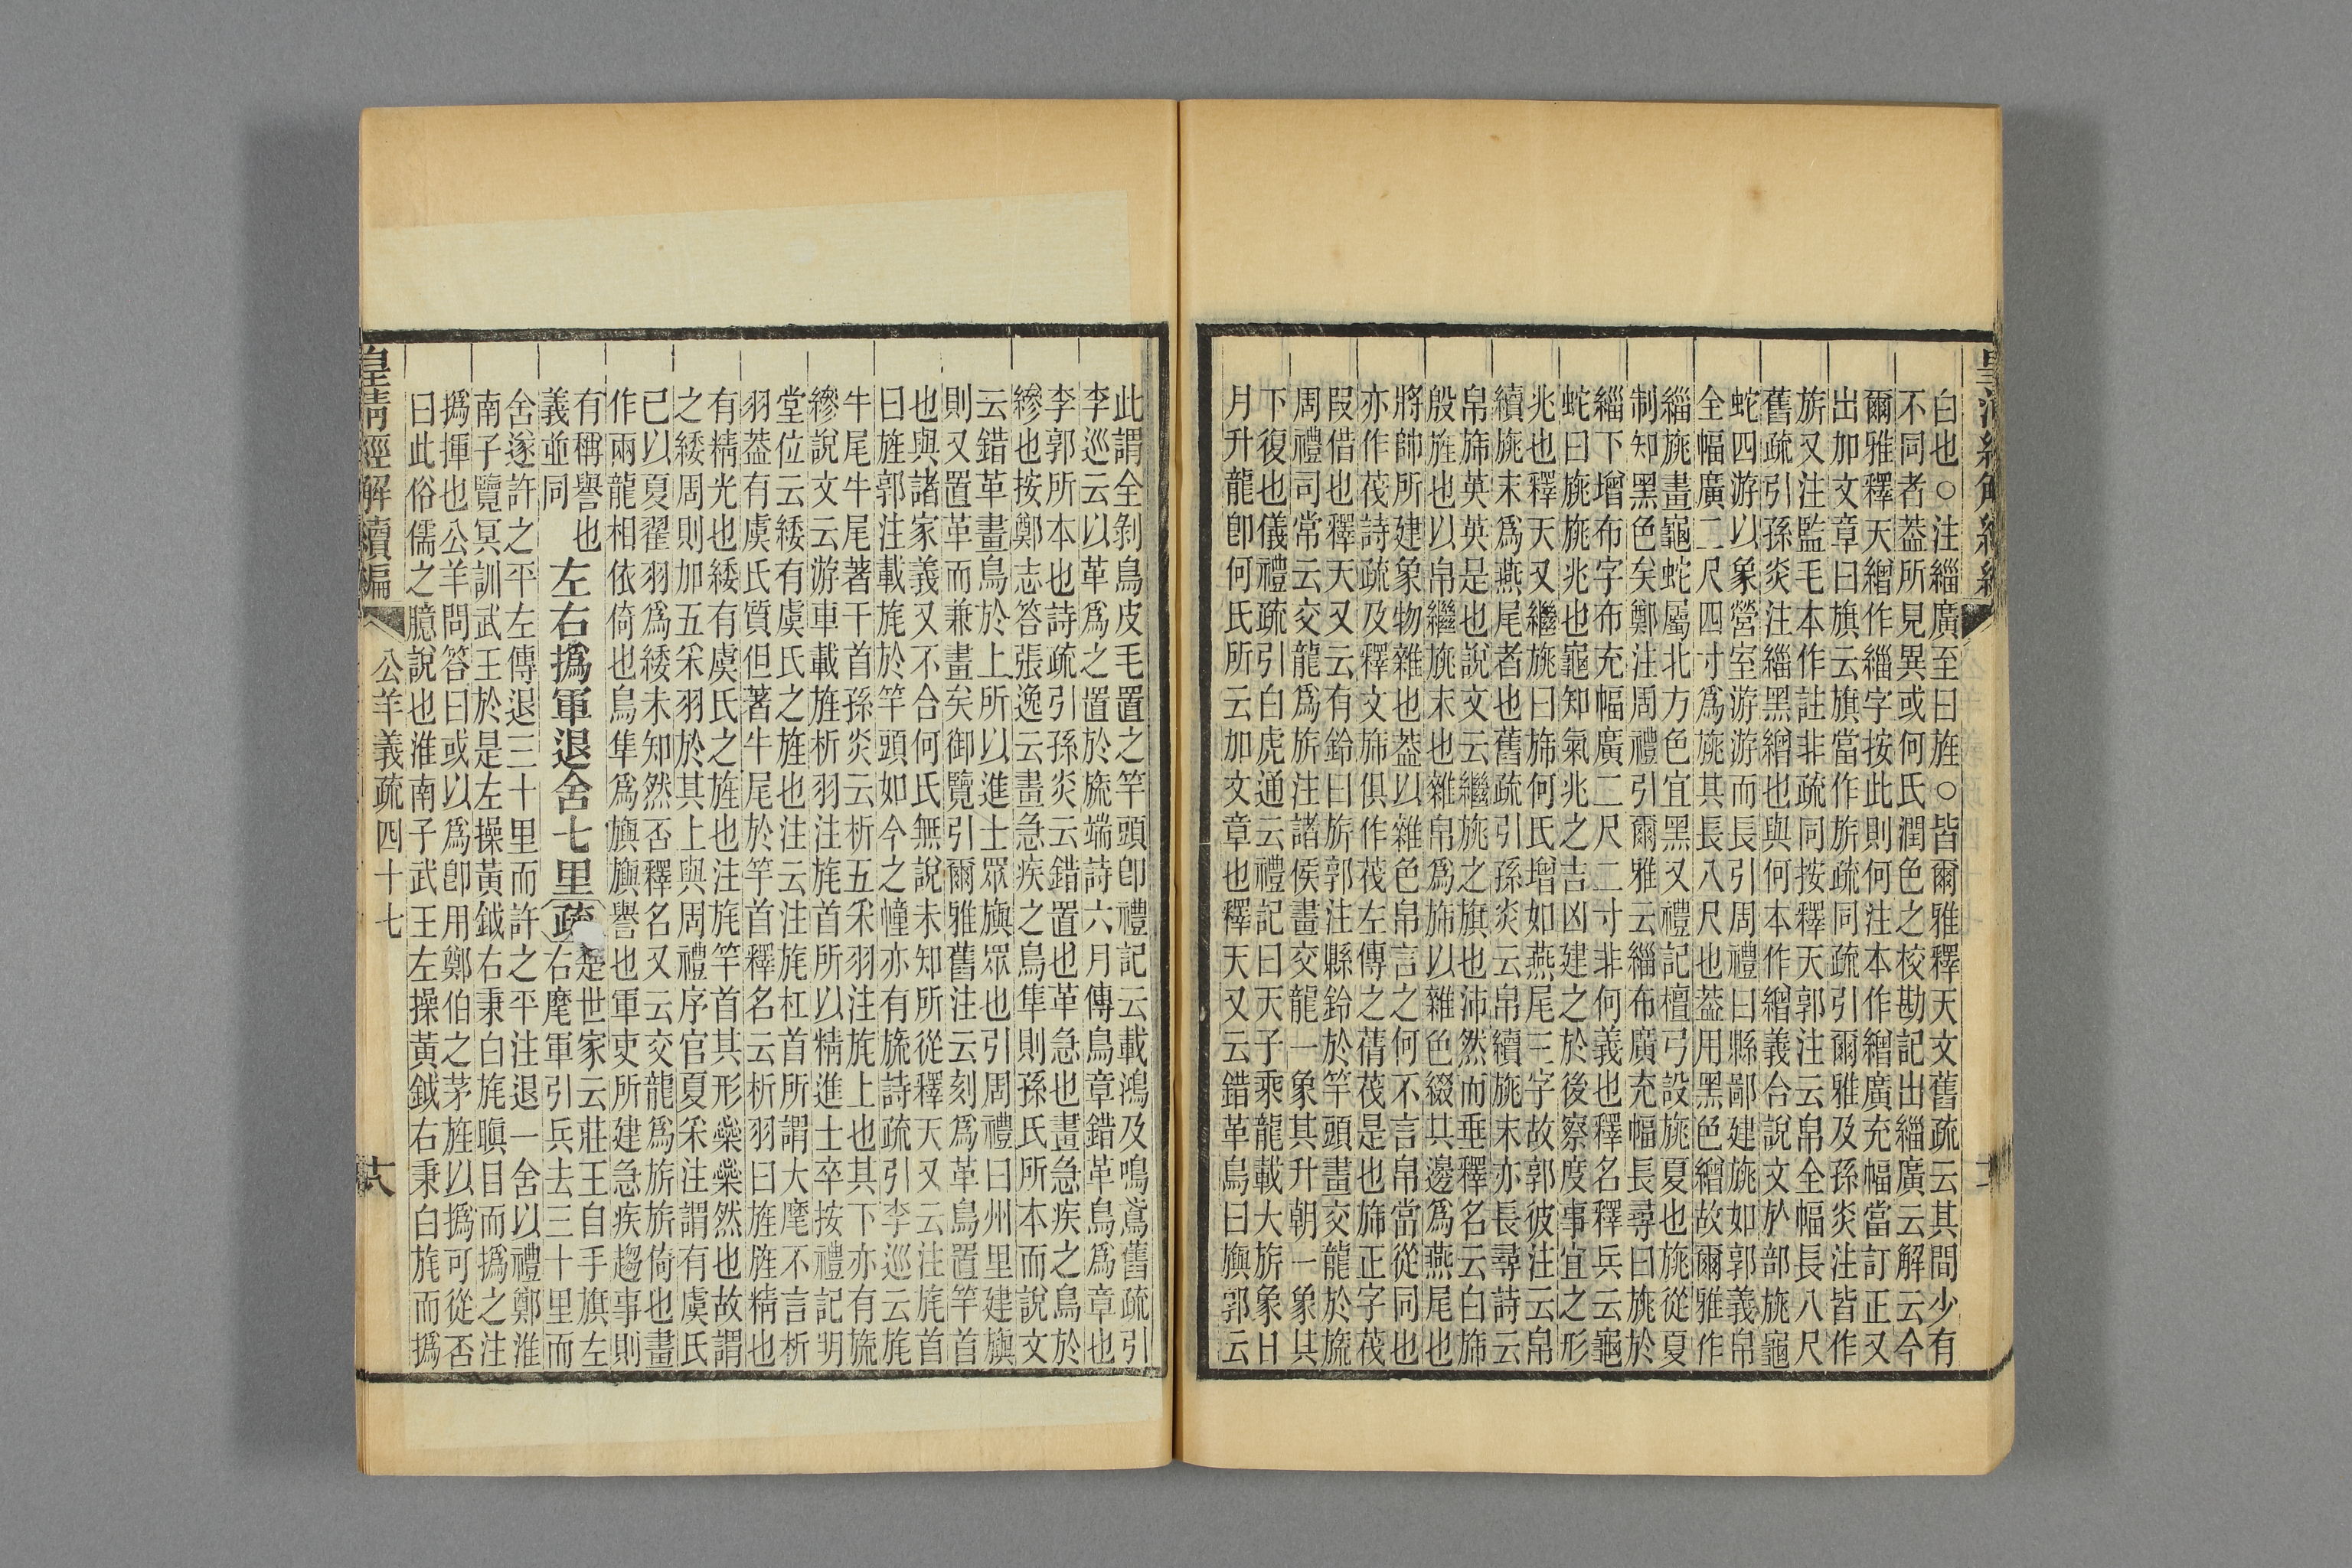 白也○注緇廣至曰旌○皆爾雅釋天文舊疏云其間少有
不同者葢所見異或何氏潤色之校勘記出緇廣云解云今
爾雅釋天繒作緇字按此則何注本作繒廣充幅當訂正又
出加文章曰旗云旗當作旂疏同疏引爾雅及孫炎注皆作
旂又注監毛本作註非疏同按釋天郭注云帛全幅長八尺
舊疏引孫炎注緇黑繒也與何本作繒義合說文㫃部旐龜
蛇四游以象營室游游而長引周禮曰縣鄙建旐如郭義帛
全幅廣二尺四寸爲旐其長八尺也葢用黑色繒故爾雅作
緇旐畫龜蛇屬北方色宜黑又禮記檀弓設旐夏也旐從夏
制知黑色矣鄭注周禮引爾雅云緇布廣充幅長尋曰旐於
緇下增布字布充幅廣二尺二寸非何義也釋名釋兵云龜
蛇曰旐旐兆也龜知氣兆之吉凶建之於後察度事宜之形
兆也釋天又繼旐曰旆何氏增如燕尾三字故郭彼注云帛
續旐末爲燕尾者也舊疏引孫炎云帛續旐末亦長尋詩云
帛旆英英是也說文云繼旐之旗也沛然而垂釋名云白旆
殷旌也以帛繼旐末也雜帛爲旆以雜色綴其邊爲燕尾也
將帥所建象物雜也葢以雜色帛言之何不言帛當從同也
亦作茷詩疏及釋文旆俱作茷左傳之蒨茷是也旆正字茷
叚借也釋天又云有鈴曰旂郭注縣鈴於竿頭畫交龍於旒
周禮司常云交龍爲旂注諸侯畫交龍一象其升朝一象其
下復也儀禮疏引白虎通云禮記曰天子乘龍載大旂象日
月升龍卽何氏所云加文章也釋天又云錯革鳥曰旟郭云
此謂全剝鳥皮毛置之竿頭卽禮記云載鴻及鳴鳶舊疏引
李巡云以革爲之置於旒端詩六月傳鳥章錯革鳥爲章也
李郭所本也詩疏引孫炎云錯置也革急也畫急疾之鳥於
縿也按鄭志答張逸云畫急疾之鳥隼則孫氏所本而說文
云錯革畫鳥於上所以進士眾旟眾也引周禮曰州里建旟
則又置革而兼畫矣御覽引爾雅舊注云刻爲革鳥置竿首
也與諸家義又不合何氏無說未知所從釋天又云注旄首
曰旌郭注載旄於竿頭如今之幢亦有旒詩疏引李巡云旄
牛尾牛尾著干首孫炎云析五采羽注旄上也其下亦有旒
縿說文云游車載旌析羽注旄首所以精進士卒按禮記明
堂位云緌有虞氏之旌也注云注旄杠首所謂大麾不言析
羽葢有虞氏質但著牛尾於竿首釋名云析羽曰旌旌精也
有精光也緌有虞氏之旌也注旄竿首其形橤橤然也故謂
之緌周則加五采羽於其上與周禮序官夏采注謂有虞氏
已以夏翟羽爲緌未知然否釋名又云交龍爲旂旂倚也畫
作兩龍相依倚也鳥隼爲旟旟譽也軍吏所建急疾趨事則
有稱譽也左右撝軍退舍七里疏楚世家云莊王自手旗左
義並同右麾軍引兵去三十里而
舍遂許之平左傳退三十里而許之平注退一舍以禮鄭淮
南子覽冥訓武王於是左操黃鉞右秉白旄瞋目而撝之注
撝揮也公羊問答曰或以爲卽用鄭伯之茅旌以撝可從否
曰此俗儒之臆說也淮南子武王左操黃鉞右秉白旄而撝
皇淸經解續編 公羊義疏四十七 十六